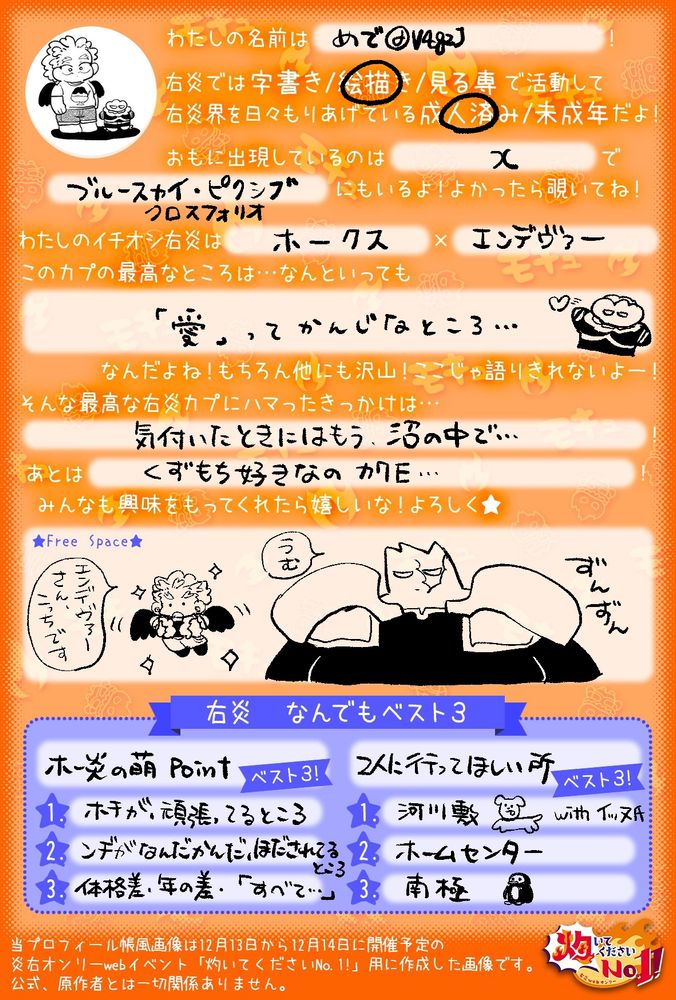 わたしの名前は めで@V4gzJ !
右炎では字書き/絵描き/見る専で活動して
右炎界を日々もりあげている成人済み/未成年だよ!
おもに出現しているのは X で
ブルースカイ・ピクシブ にもいるよ!よかったら覗いてね!
クロスフォリオ
わたしのイチオシ右炎は ホークス × エンデヴァー
このカプの最高なところは…なんといっても
「愛」ってかんじなところ…
なんだよね!もちろん他にも沢山!ここじゃ語りきれないよー!
そんな最高な右炎カプにハマったきっかけは…
気付いたときにはもう、沼の中で… !
あとは くずもち好きなの カワE… !
みんなも興味をもってくれたら嬉しいな!よろしく★
★Free Space★
エンデヴァー
さん、
うちです
うむ
ずんずん
右炎 なんでもベスト3
ホー炎の萌Point
ベスト3!
1. ホチが、頑張ってるところ
2. ンデがなんだかんだ、ほだされてる
ところ
3. 体格差・年の差・「すべて…」
2人に行ってほしい所
ベスト3!
1. 河川敷 with イッヌ氏
2. ホームセンター
3. 南極
当プロフィール帳風画像は12月13日から12月14日に開催予定の
炎右オンリーwebイベント「灼いてくださいNo.1!」用に作成した画像です。
公式、原作者とは一切関係ありません。
灼いてくださいNo.1!